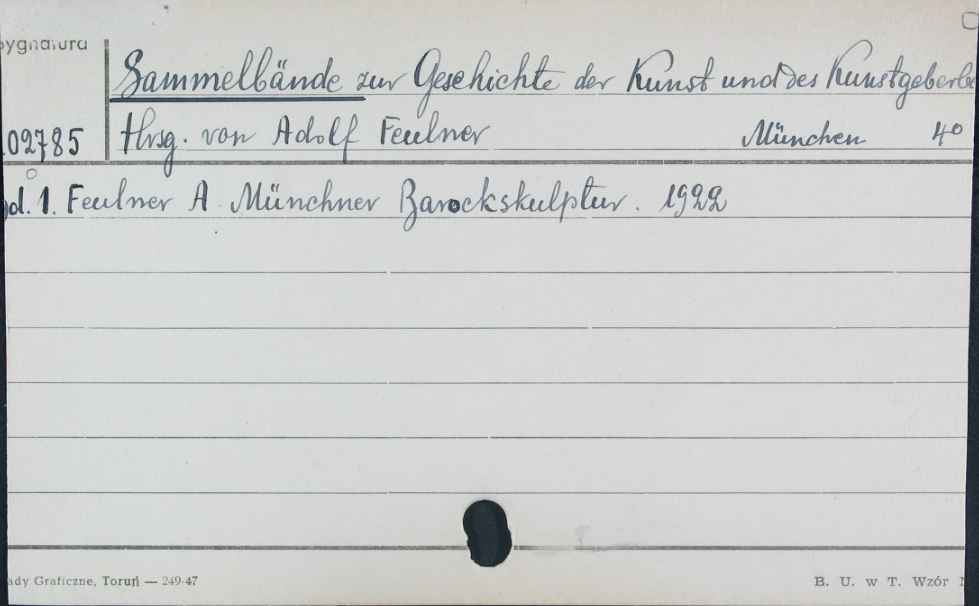 Sygnatura
Sammelbände zur Geschichte der Kunst und des Kunstgeberbe
02785 Hrsg. von Adolf Feulner München 4°
Bd. 1. Feulner A. Münchner Barockskulptur. 1922
ady Graficzne, Toruń — 249-47 B. U. w T. Wzór